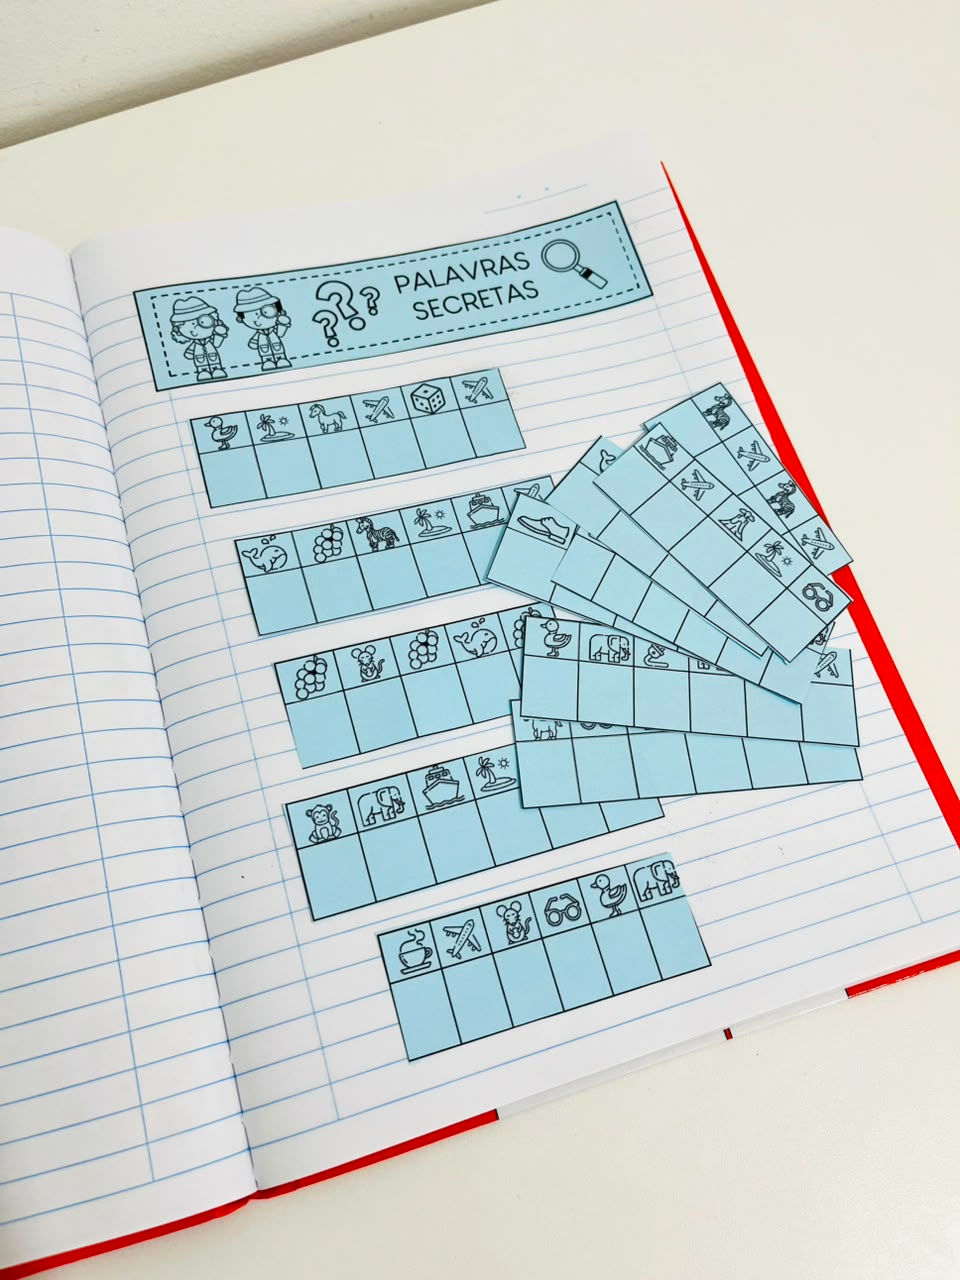 PALAVRAS
SECRETAS